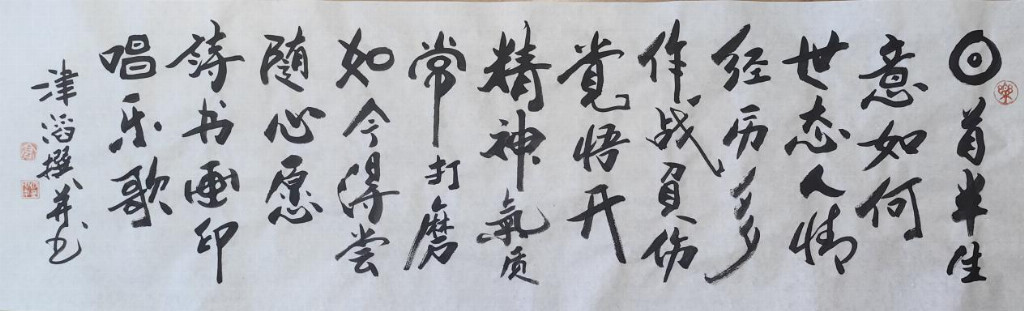 回首半生
意如何
世态人情
经历多
作战负伤
觉悟开
精神氣质
常打磨
如今得尝
随心愿
诗书画印
唱乐歌
津滔撰并书